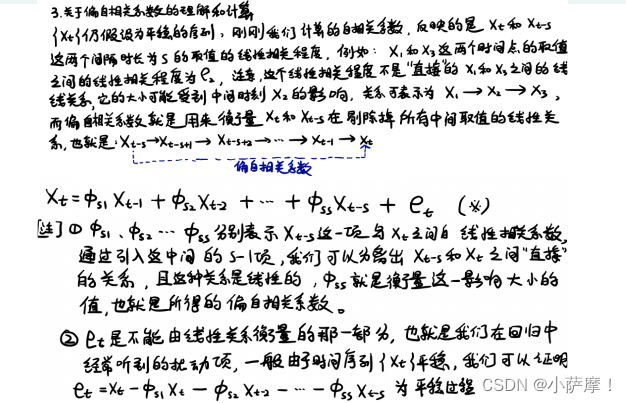 3.关于偏自相关系数的理解和计算
{Xt}仍假设为平稳的序列,刚刚我们计算的自相关系数,反映的是 Xt 和 Xt-s
这两个间隔时长为 s 的取值的线性相关程度,例如:X1和X3这两个时间点的取值
之间的线性相关程度为ρ2,注意,这个线性相关程度不是"直接"的X1和X3之间的线
线关系,它的大小可能受到中间时刻 X2 的影响,关系可表示为 X1→X2→X3,
而偏自相关系数就是用来衡量 Xt和Xt-s在剔除掉所有中间取值的线性关
系,也就是:Xt-s→Xt-s+1→Xt-s+2→…→Xt-1→Xt
偏自相关系数
Xt=Φs1Xt-1+Φs2Xt-2+…+Φss Xt-s+et (※)
[注]① Φs1、Φs2…Φss分别表示Xt-s这一项与Xt之间的线性相关系数,
通过引入这中间的s-1项,我们可以分离出Xt-s和Xt之间"直接"
的关系,且这种关系是线性的,Φss就是衡量这一影响大小的
值,也就是所得的偏自相关系数。
② et是不能由线性关系衡量的那一部分,也就是我们在回归中
经常听到的扰动项,一般由于时间序列{Xt}平稳,我们可以证明
et=Xt-Φs1Xt-Φs2Xt-2-…-Φss Xt-s 为平稳过程
CSDN @小萨摩!